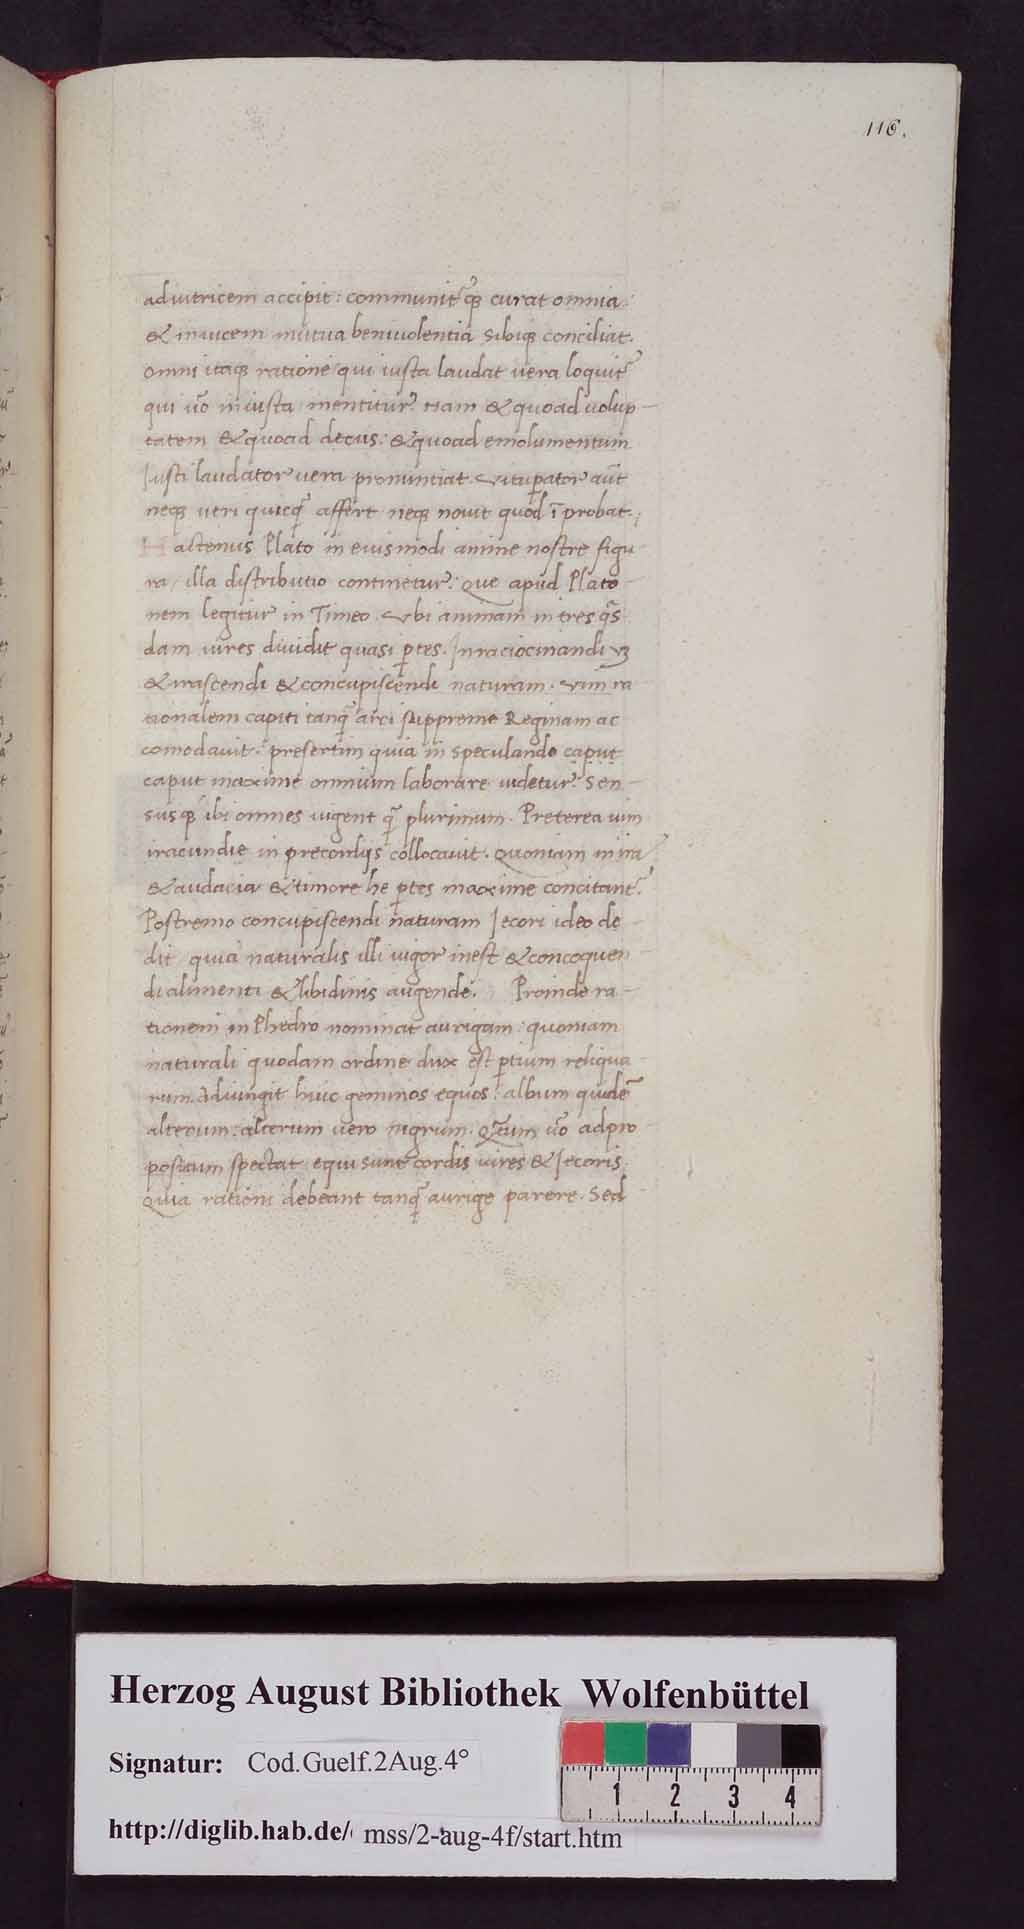 116.
adiutricem accipit: communit̃ qꝫ curat omnia:
& inuicem mutua beniuolentia sibiqꝫ conciliat.
omni itaqꝫ ratione qui iusta laudat uera loquit̃
qui ũo iniusta mentitur. nam & quoad uolup-
tatem & quoad decus: & quoad emolumentum
Iusti laudator uera pronuntiat. Vituꝑator aũt
neqꝫ ueri quicq̃ affert neqꝫ nouit quod ĩprobat.
Hactenus Plato in eiusmodi anime nostre figu
ra illa distributio continetur: Que apud Plato-
nem legitur in Timeo. Vbi animam in tres q̃s-
dam uires diuidit quasi ꝑtes. In raciocinandi uꝫ
& irascendi & concupiscendi naturam. Vim ra
tionalem capiti tanq̃ arci suppreme Reginam ac
comodauit: presertim quia in speculando caput
caput maxime omnium laborare uidetur. Sen-
susqꝫ ibi omnes uigent q̃ plurimum. Preterea uim
iracundie in precordijs collocauit. Quoniam in ira
& audacia & timore he ꝑtes maxime concitant̃.
Postremo concupiscendi naturam Iecori ideo de-
dit quia naturalis illi uigor inest & concoquen-
di alimenti & libidinis augende. Proinde ra-
tionem in Phedro nominat aurigam: quoniam
naturali quodam ordine dux est ꝑtium reliqua-
rum. adiungit huic geminos equos: album quidẽ
alterum: alterum uero nigrum. Q̃tum ũo ad pro
positum spectat equi sunt cordis uires & Iecoris
Quia rationi debeant tanq̃ aurige parere. Sed
Herzog August Bibliothek Wolfenbüttel
Signatur: Cod.Guelf.2Aug.4°
1 2 3 4
http://diglib.hab.de/ mss/2-aug-4f/start.htm